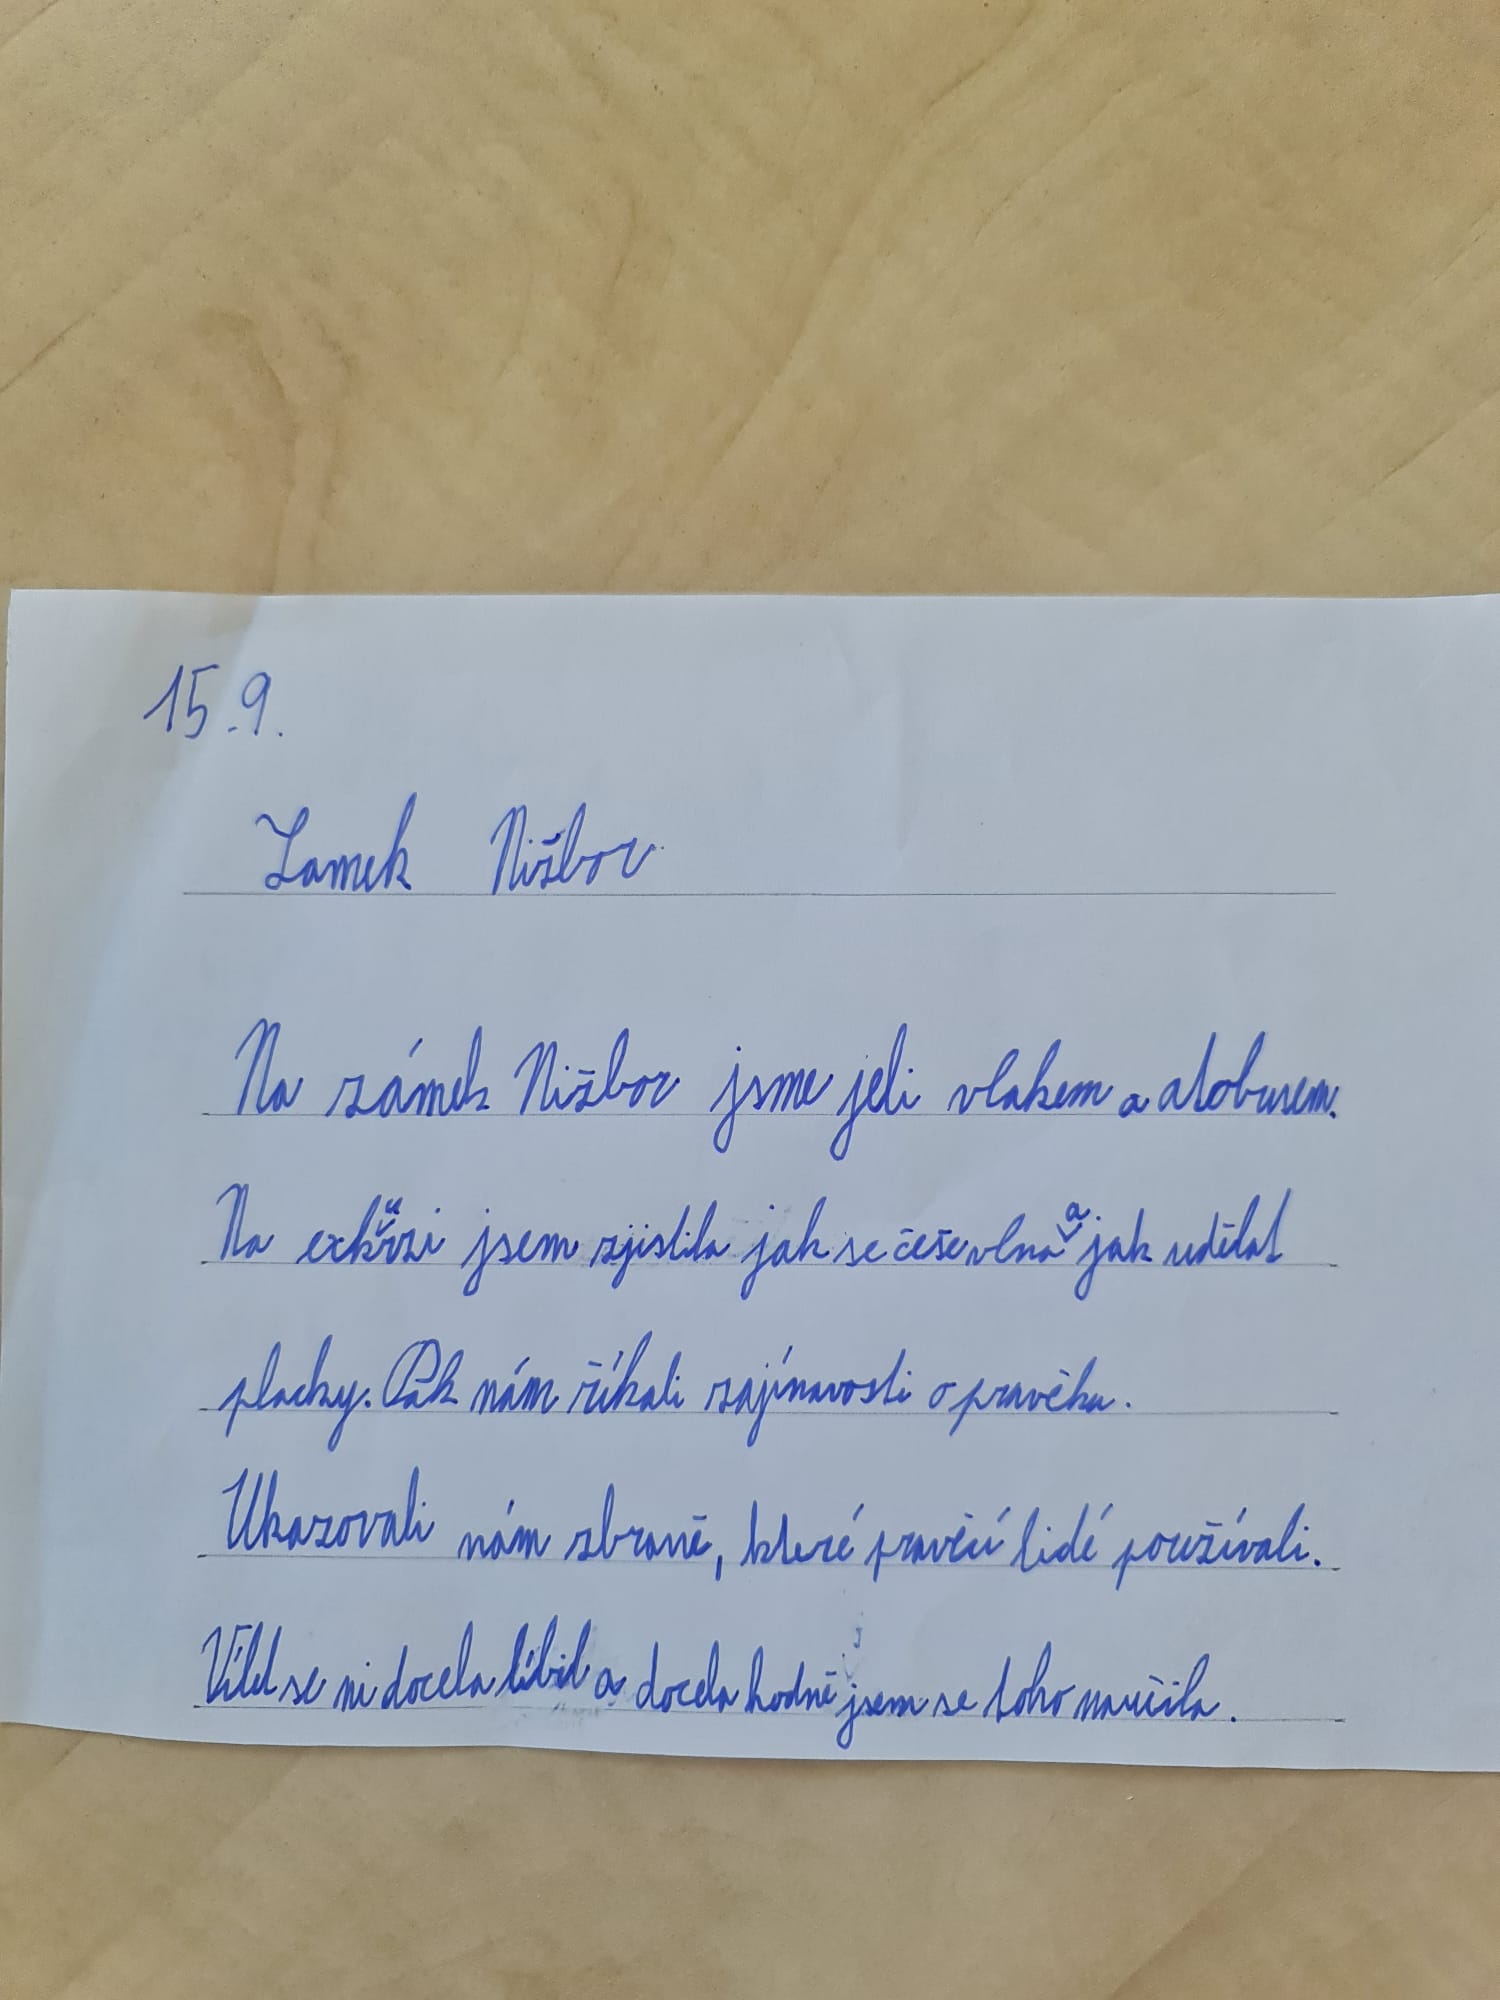 15.9.
Zamek Nižbor
Na zámek Nižbor jsme jeli vlakem a atobusem.
Na exkurzi jsem zjistila jak se češe vlna a jak udělat
placky. Pak nám říkali zajínavosti o pravěku.
Ukazovali nám zbraně, které pravěcí lidé používali.
Výlet se mi docela líbil a docela hodně jsem se toho naučila.